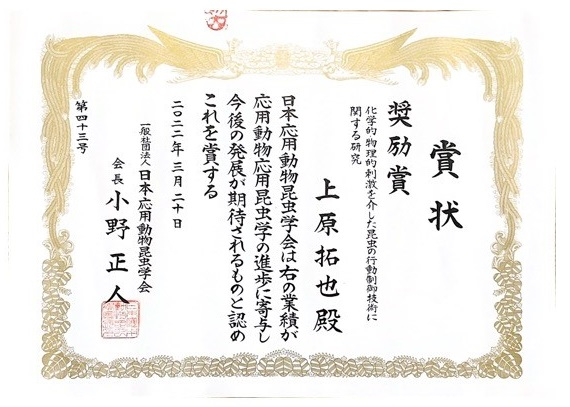 賞状
奨励賞
化学的・物理的刺激を介した昆虫の行動制御技術に
関する研究
上原拓也殿
日本応用動物昆虫学会は右の業績が
応用動物応用昆虫学の進歩に寄与し
今後の発展が期待されるものと認め
これを賞する
二〇二二年三月二十日
一般社団法人日本応用動物昆虫学会
会長小野正人
第四十三号